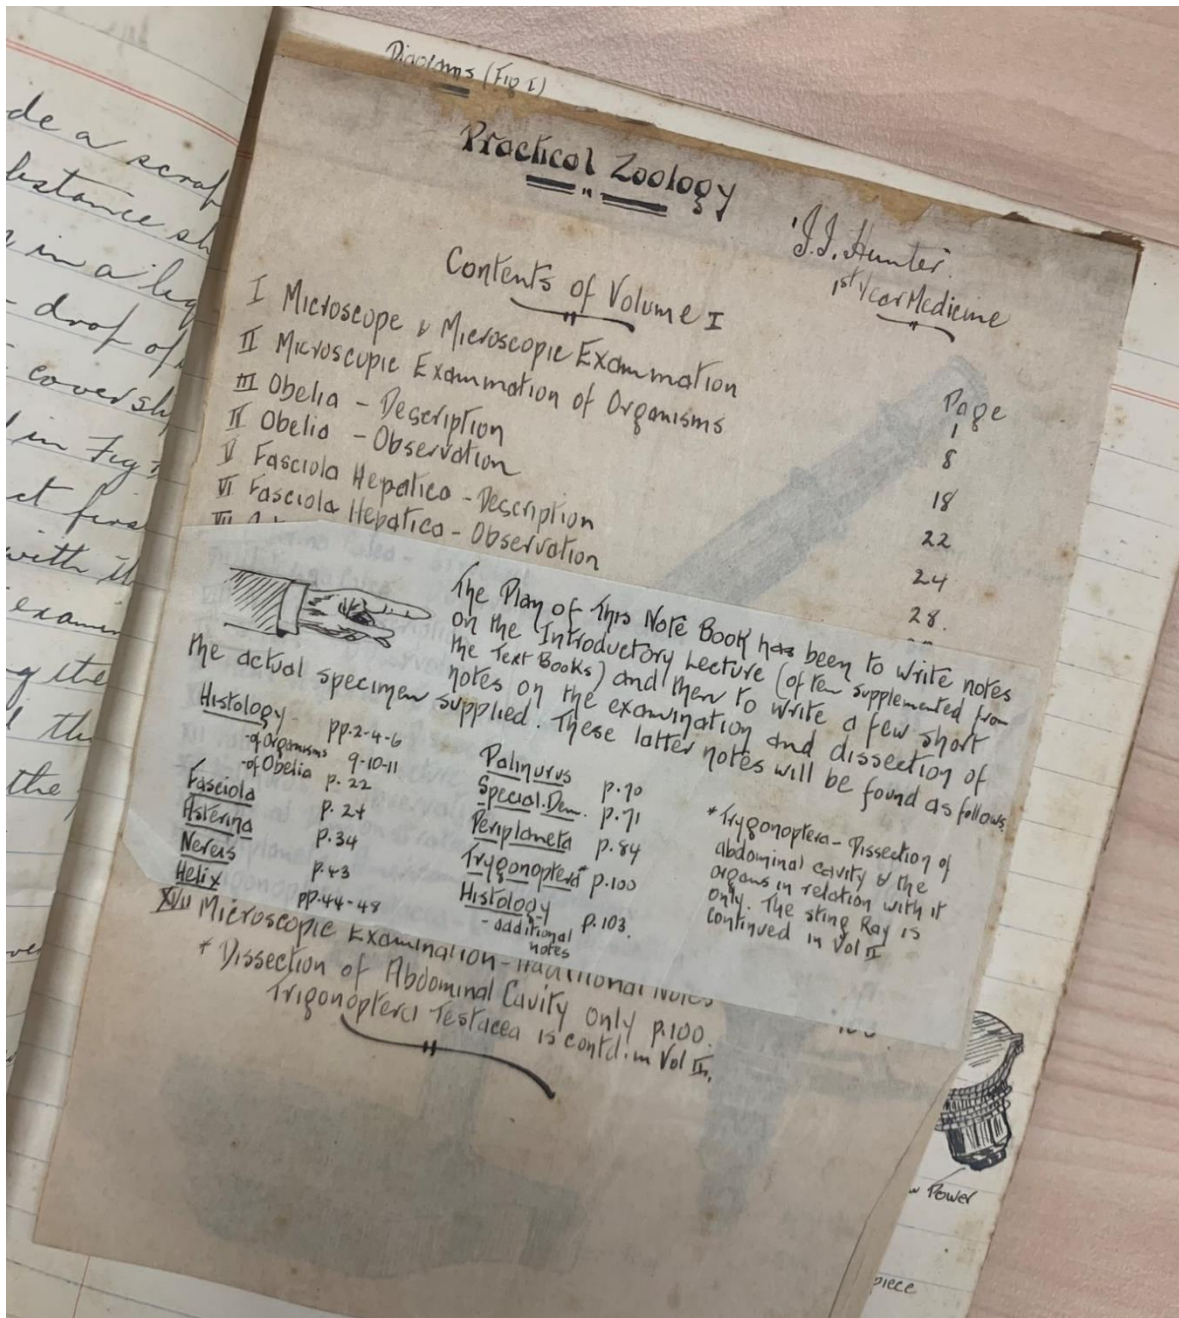 Diagrams (Fig I)
Practical Zoology
J.I. Hunter.
1st Year Medicine
Contents of Volume I
Page
I Microscope & Microscopic Examination 1
II Microscopic Examination of Organisms 8
III Obelia - Description 18
IV Obelia - Observation 22
V Fasciola Hepatica - Description 24
VI Fasciola Hepatica - Observation 28.
The Plan of This Note Book has been to write notes
on the Introductory Lecture (often supplemented from
the Text Books) and then to write a few short
notes on the examination and dissection of
the actual specimen supplied. These latter notes will be found as follows.
Histology pp. 2-4-6
-of Organisms 9-10-11
-of Obelia p. 22
Fasciola p. 24
Asterina p. 34
Nereis p. 43
Helix pp. 44-48
Palinurus p. 70
Special. Dem. p. 71
Periplaneta p. 84
Trygonoptera* p. 100
Histology p. 103.
- additional
notes
* Trygonoptera - Dissection of
abdominal cavity & the
organs in relation with it
only. The sting Ray is
continued in Vol II
XVII Microscopic Examination - Additional Notes
* Dissection of Abdominal Cavity only p. 100.
Trigonoptera Testacea is contd. in Vol II.
de a scrap
bstance sh
in a liq
drop of
coversli
in Fig
ct first
with it
examin
g the
the
the
w Power
piece